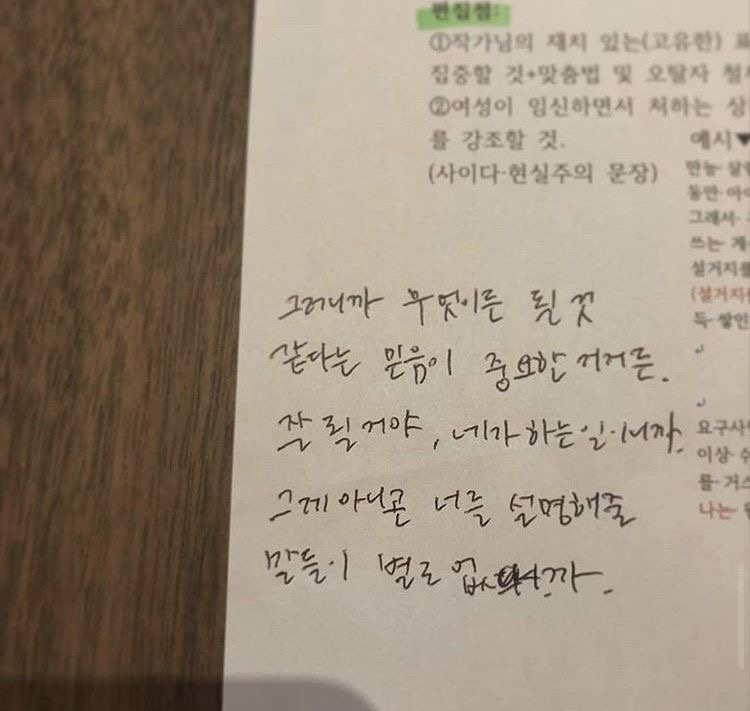 편집점:
①작가님의 재치 있는(고유한) 표
집중할 것+맞춤법 및 오탈자 철
②여성이 임신하면서 처하는 상
를 강조할 것.
(사이다·현실주의 문장)
예시▼
만능 살
동만 아
그래서
쓰는 게
설거지를
(설거지
득 쌓인
요구사
이상 수
를 거스
나는
그러니까 무엇이든 될 것
같다는 믿음이 중요한 거거든.
잘 될 거야, 네가 하는 일이니까.
그게 아니곤 너를 설명해줄
말들이 별로 없으니까.